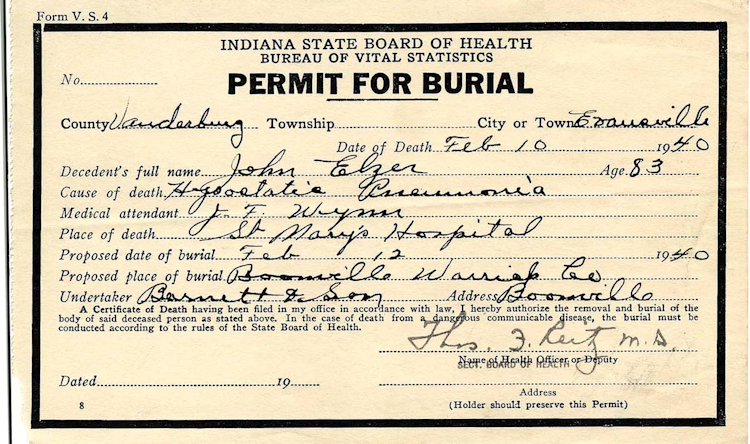 Form V. S. 4
INDIANA STATE BOARD OF HEALTH
BUREAU OF VITAL STATISTICS
No.
PERMIT FOR BURIAL
County Vanderburg Township City or Town Evansville
Date of Death Feb 10 1940
Decedent's full name John Elzer Age 83
Cause of death Hypostatic Pneumonia
Medical attendant J. F. Wynn
Place of death St Mary's Hospital
Proposed date of burial Feb 12 1940
Proposed place of burial Boonville Warrick Co
Undertaker Barnett & Son Address Boonville
A Certificate of Death having been filed in my office in accordance with law, I hereby authorize the removal and burial of the
body of said deceased person as stated above. In the case of death from a dangerous communicable disease, the burial must be
conducted according to the rules of the State Board of Health.
Thos. F. Reitz M.D.
Name of Health Officer or Deputy
SECT. BOARD OF HEALTH
Dated 19
Address
8 (Holder should preserve this Permit)